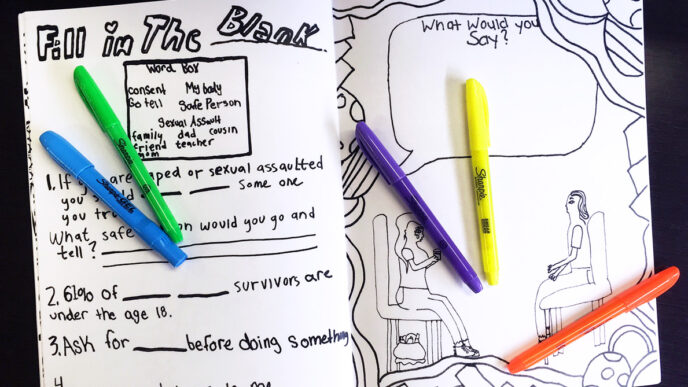 Fill in The Blank
Word Box
consent My body
Go tell Safe Person
Sexual Assault
family dad cousin
friend teacher
mom
1. If you are raped or sexual assaulted
you should some one
you trust
What safe person would you go and
tell?
2. 61% of survivors are
under the age 18.
3. Ask for before doing something
What would you
Say?
Sharpie
Sharpie
Sharpie